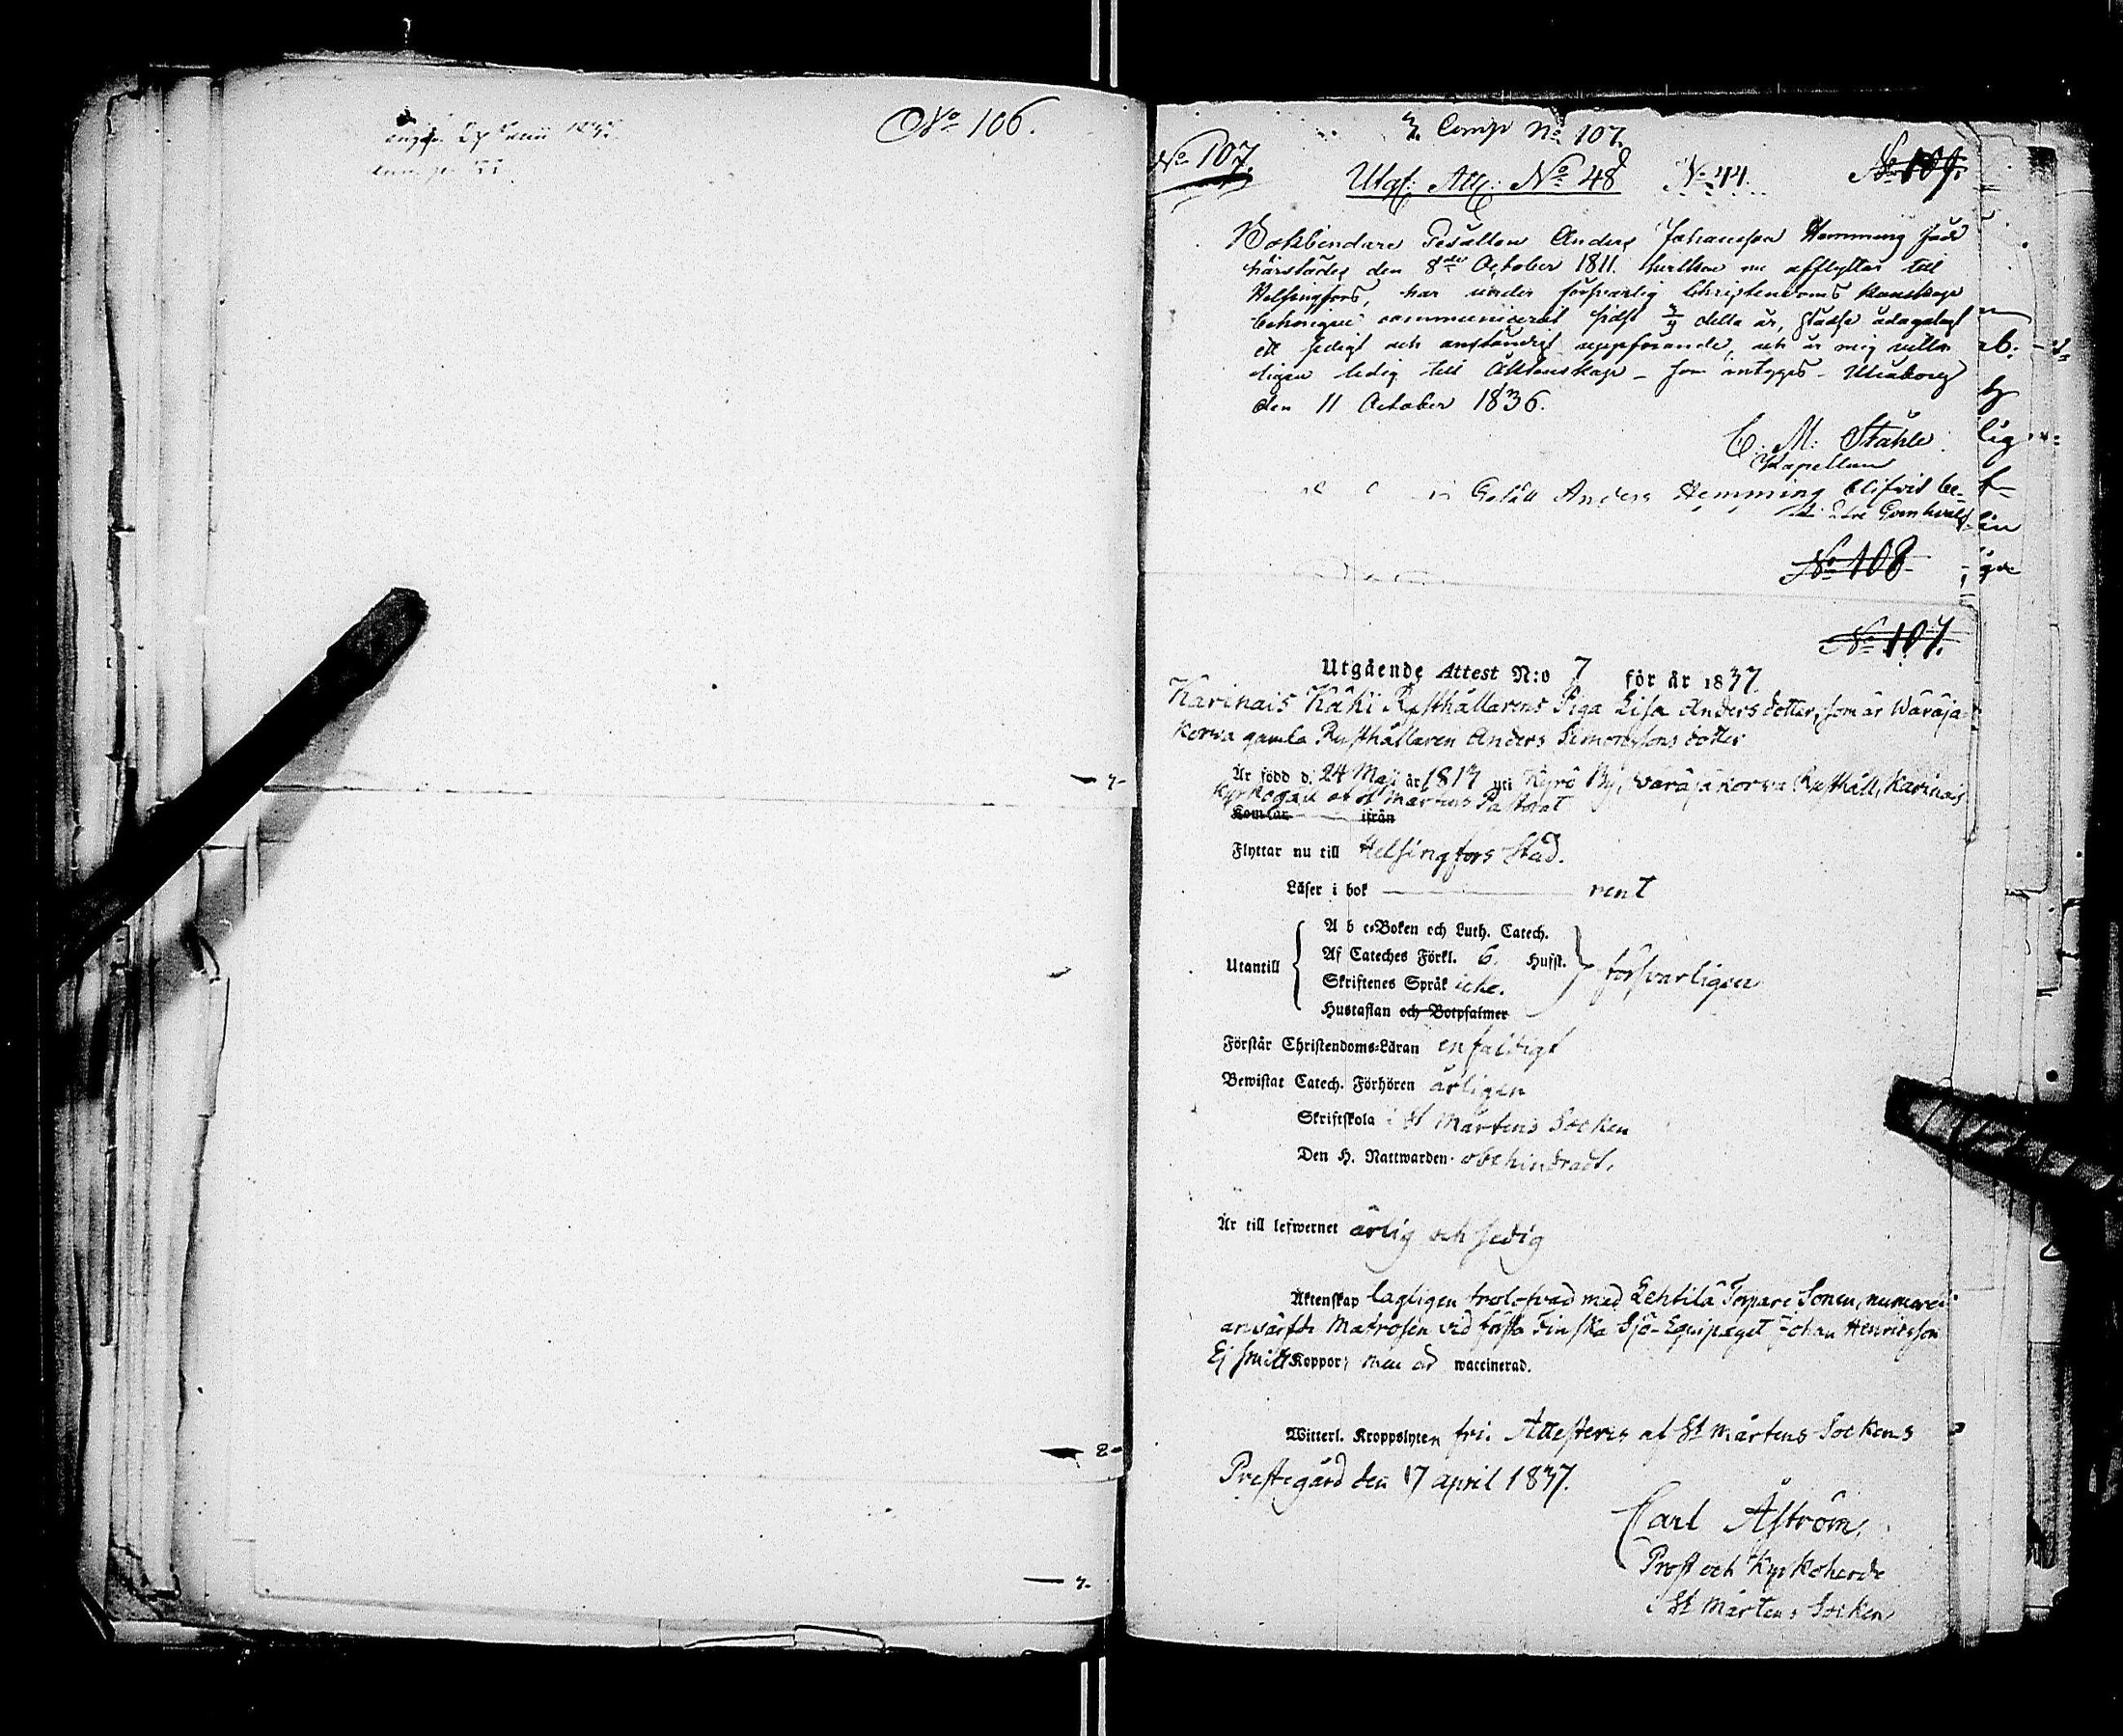 No 106.
Comp No 107.
No 107.
Utgf: Att: No 48 No 44. No 109.
Bokbindare Gesällen Anders Johansson Hemming född
härstädes den 8de October 1811. hvilken nu afflyttar till
Helsingfors, har under försvarlig Christendoms kunskap
behörigen communicerat sidst detta år, städse ådagalagt
ett sedigt och anständigt uppförande, och är mig vitter-
ligen ledig till Äktenskap - som intygas - Uleåborg
den 11 October 1836.
C. M. Ståhle.
Kapellan
Gesäll Anders Hemming blifvit be-
No 108
No 107.
Utgående Attest N:o 7 för år 1837.
Karinais Käki Rusthållarens Piga Lisa Anders dotter, som är Wäräjä-
korva gamla Rusthållaren Anders Simonssons dotter
Är född d. 24 Maji år 1813 uti Kyrö By, Wäräjäkorva Rusthåll, Karinais
Kyrkogäll af St Mårtens Pastorat
Kom[]lär ifrån
Flyttar nu till Helsingfors Stad.
Läser i bok rent
A b c-Boken och Luth. Catech.
Af Cateches Förkl. 6. Hufst.
Utantill försvarligen
Skriftenes Språk icke.
Hustaflan och Botpsalmer
Förstår Christendoms-Läran enfaldigt
Bewistat Catech. Förhören årligen
Skriftskola i St Mårtens Socken
Den H. Nattwarden obehindradt.
Är till lefwernet ärlig och sedig
Äktenskap lagligen trolofvad med Lehtilä Torpare Sonen, numera
anvärfde Matrosen vid första Finska Sjö-Equipaget Johan Henricsson
Ej haft Koppor, men är waccinerad.
Witterl. Kroppslyten fri. Attesteras af St Mårtens Sockens
Prestegård den 17 april 1837.
Carl Åström,
Prost och Kyrkoherde
i St Mårtens Socken